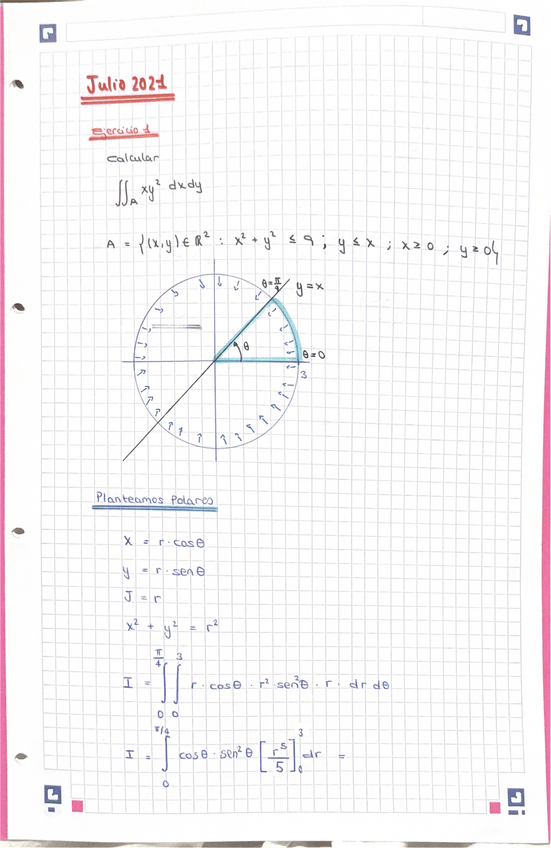 Julio 2021
Ejercicio 1
Calcular
∬_A xy² dxdy
A = {(x,y) ∈ ℝ² : x² + y² ≤ 9 ; y ≤ x ; x ≥ 0 ; y ≥ 0}
θ = π/4 y = x
θ
θ = 0
3
Planteamos Polares
x = r · cosθ
y = r · senθ
J = r
x² + y² = r²
I = ∫₀^{π/4} ∫₀^3 r · cosθ · r² sen²θ · r · dr dθ
I = ∫₀^{π/4} cosθ · sen²θ [r⁵/5]₀^3 dr =